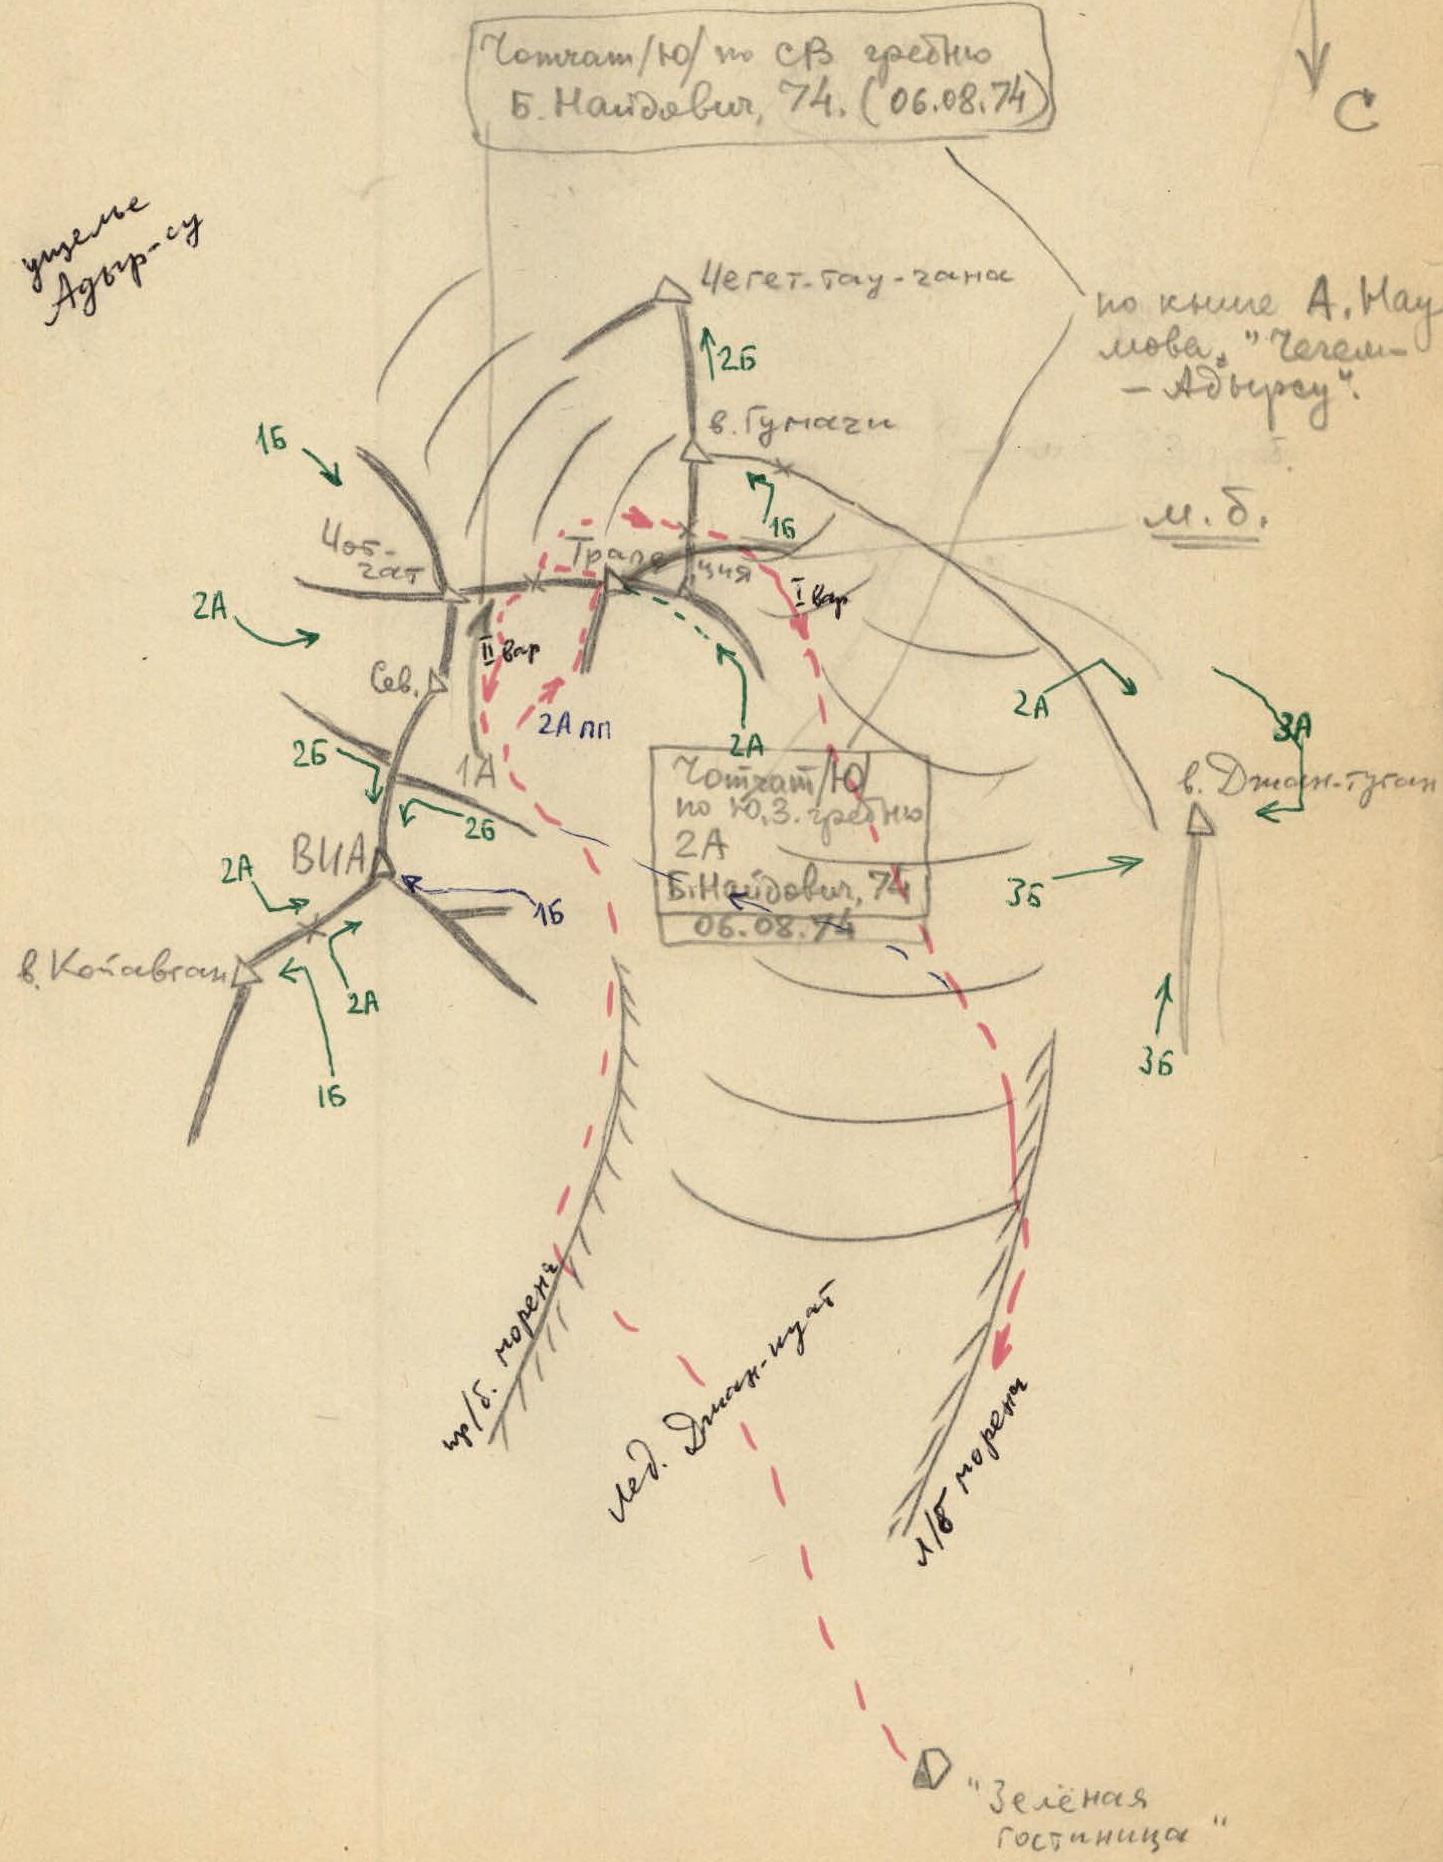 Чотчат/Ю/ по СВ гребню
Б. Найдович, 74. (06.08.74)
С
ущелье
Адыр-су
Чегет-тау-чана
по книге А. Нау
мова, "Чегем-
- Адырсу".
2Б
в. Гумачи
1Б
м. б.
1Б
Чот-
чат
Трапе
ция
I вар
2А
II вар
Сев.
2А пп
2А
2А
3А
2Б
1А
Чотчат/Ю/
по Ю.З. гребню
2А
Б. Найдович, 74
06.08.74
в. Джан-туган
2Б
ВИА
2А
1Б
3Б
в. Койавган
2А
1Б
3Б
пр/б. морена
лед. Джан-куат
л/б морена
"Зелёная
гостиница"